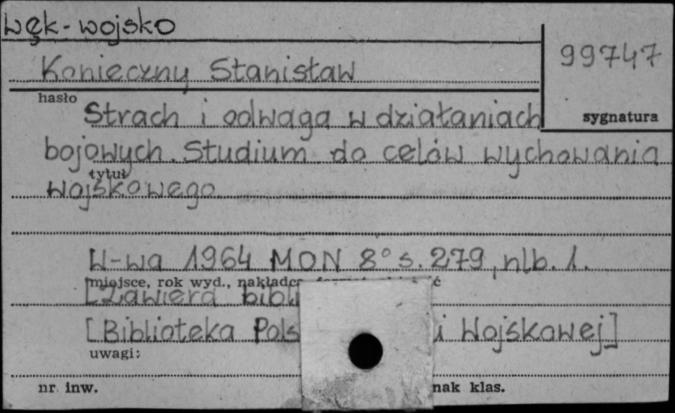 Lęk-wojsko
99747
Konieczny Stanisław
hasło
Strach i odwaga w działaniach
sygnatura
bojowych. Studium do celów wychowania
tytuł
wojskowego.
W-wa 1964 MON 8° s. 279, nlb. 1.
miejsce, rok wyd., nakładca,
[Zawiera bibli
[Biblioteka Pols i Wojskowej]
uwagi:
nr inw. nak klas.